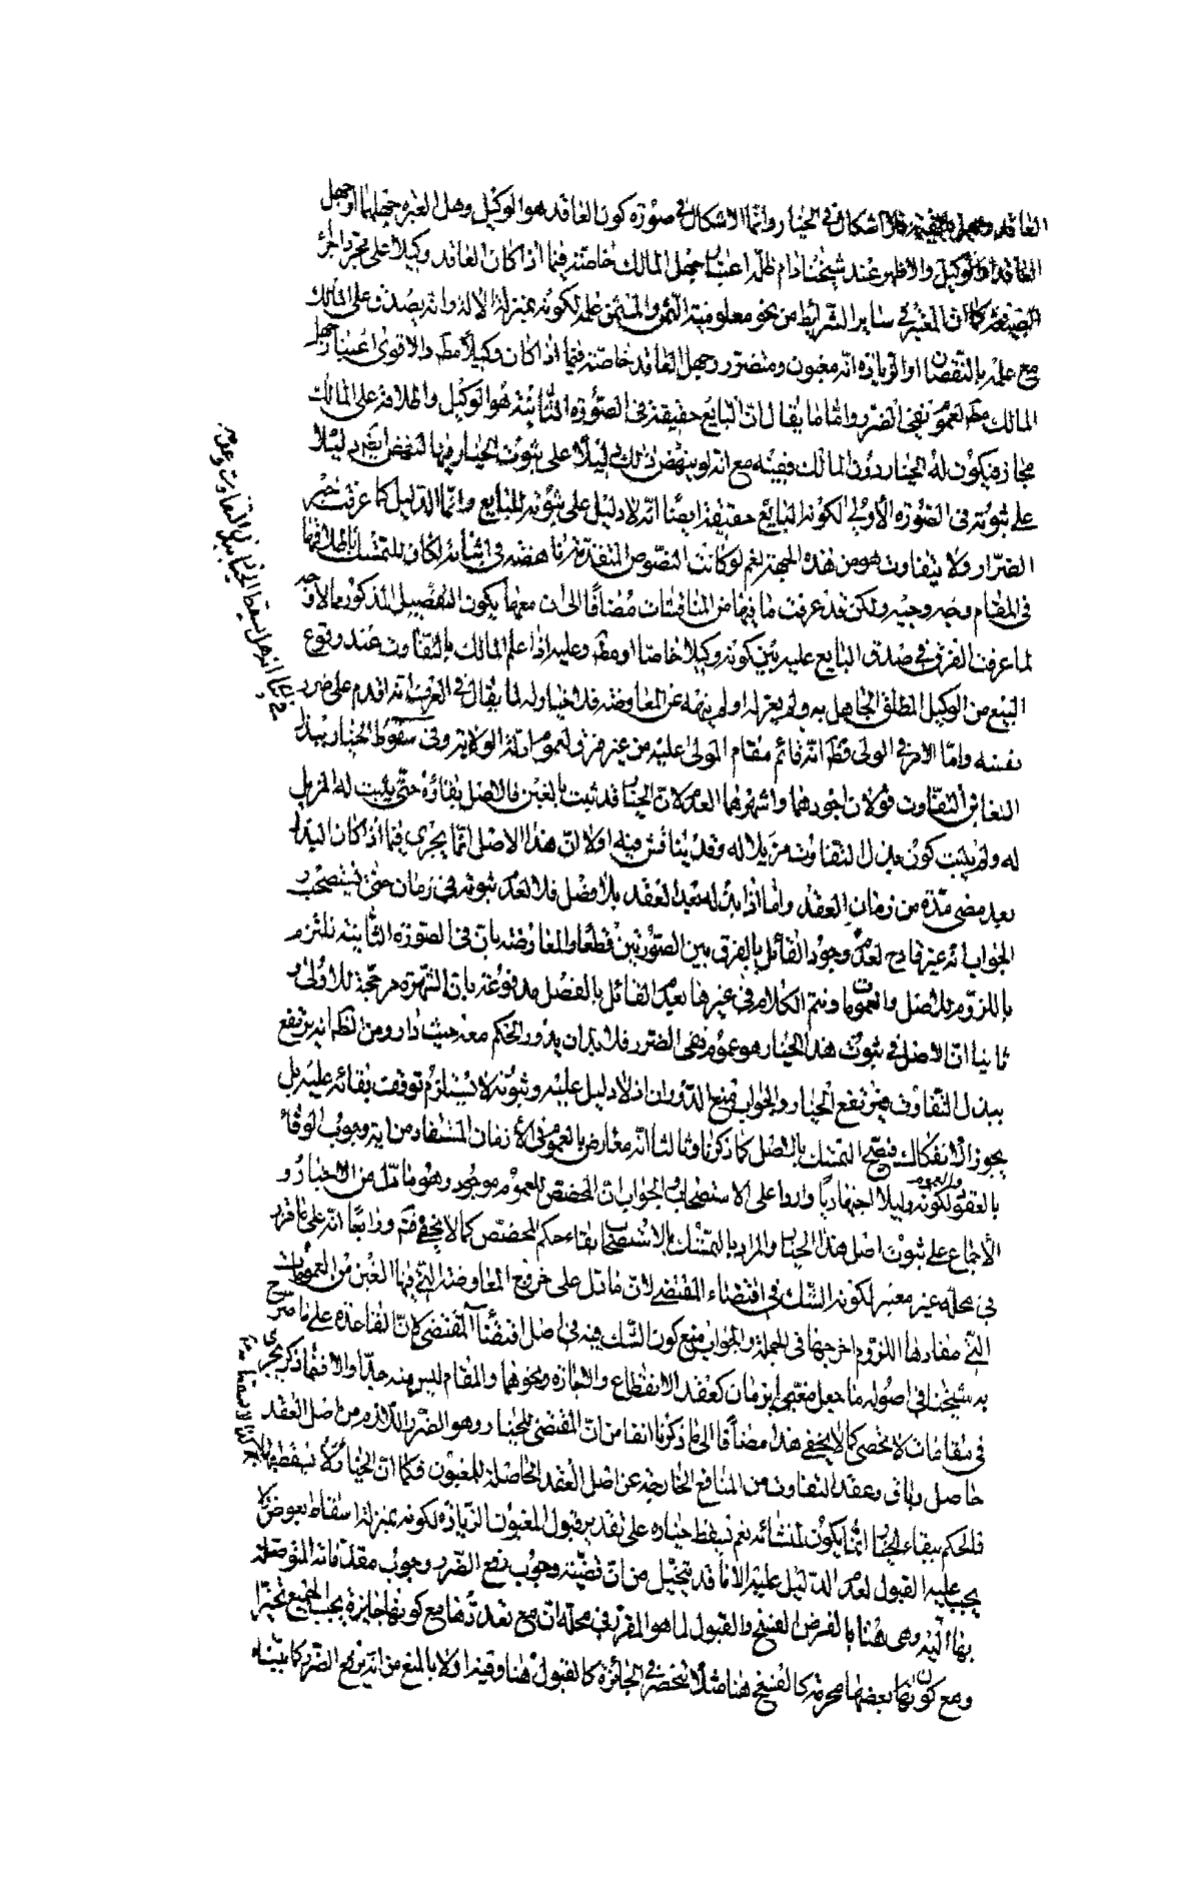 العاقد وجهل بالقيمة فلا اشكال فى الخيار وانما الاشكال فى صورة كون العاقد هو الوكيل وهل العبرة بجهلهما او جهل
العاقد او الوكيل والاظهر عند شيخنا دام ظله اعتبار جهل المالك خاصة فيما اذا كان العاقد وكيلا على مجرد اجراء
الصيغة كما ان المعتبر فى ساير الشرائط من نحو معلومية الثمن والمثمن علمه لكونه بمنزلة الالة وانه يصدق على المالك
مع علمه بالنقصان او الزيادة انه مغبون ومتضرر وجهل العاقد خاصة فيما اذا كان وكيلا مط والاقوى اعتبار جهل
المالك مط لعموم نفى الضرر واما ما يقال ان البايع حقيقة فى الصورة الثانية هو الوكيل واطلاقه على المالك
مجاز فيكون له الخيار دون المالك ففيه مع انه لو ينهض ذلك دليلا على ثبوت الخيار فيها لنهض ايضا دليلا
على ثبوته فى الصورة الاولى لكونه البايع حقيقة ايضا انه لا دليل على ثبوته للبايع وانما الدليل كما عرفت خبر
الضرار ولا يتفاوت هو من هذه الجهة نعم لو كانت النصوص المتقدمة ناهضة فى اثباته لكان للتمسك باطلاقها
فى المقام وجه وجيه ولكن قد عرفت ما فيها من المناقشات مضافا الى ان معها يكون التفصيل المذكور مما لا وجه
لما عرفت الفرق فى صدق البايع عليه بين كونه وكيلا خاصا او مط وعليه اذا علم المالك بالتفاوت عند وقوع
البيع من الوكيل المطلق الجاهل به ولم يعزله او لم ينهه عن المعاوضة فلا خيار له لما يقال فى العرف انه اقدم على ضرر
نفسه واما الامر فى الولى فظ انه قائم مقام المولى عليه من غير فرق لعموم ادلة الولاية وفى سقوط الخيار ببذل
الغابن التفاوت قولان اجودهما واشهرهما العدم لان الخيار قد ثبت بالغبن فالاصل بقاؤه حتى يثبت له المزيل
له ولم يثبت كون بذل التفاوت مزيلا له وقد يناقش فيه اولا ان هذا الاصل انما يجرى فيما اذا كان البذل
بعد مضى مدة من زمان العقد واما اذا بذله بعد العقد بلا فصل فلا لعدم ثبوته فى زمان حتى يستصحب و
الجواب انه غير قادح لعدم وجود القائل بالفرق بين الصورتين قطعا والمعارضة بان فى الصورة الثانية نلتزم
باللزوم للاصل والعمومات ونتم الكلام فى غيرها بعدم القائل بالفصل مدفوعة بان الشهرة مرجحة للاولى و
ثانيا ان الاصل فى ثبوت هذا الخيار هو عموم نفى الضرر فلا بد ان يدور الحكم معه حيث دار ومن الظ انه يرتفع
ببذل التفاوت فيرتفع الخيار والجواب بمنع الدوران اذ لا دليل عليه وثبوته لا يستلزم توقف بقائه عليه بل
يجوز الانفكاك فيصح التمسك بالاصل كما ذكرنا وثالثا انه معارض بالعموم فى الازمان المستفاد من اية وجوب الوفاء
بالعقود لكونه والعموم دليلا اجتهاديا واردا على الاستصحاب والجواب ان المخصص للعموم موجود وهو ما دل من الاخبار و
الاجماع على ثبوت اصل هذا الخيار والمراد بالتمسك بالاستصحاب ابقاء حكم المخصص كما لا يخفى فتم ورابعا انه على ما قرر
فى محله غير معتبر لكونه الشك فى اقتضاء المقتضى لان ما دل على خروج المعاوضة التى فيها الغبن من العمومات
التى مفادها اللزوم اخرجها فى الجملة والجواب منع كون الشك فيه فى اصل اقتضاء المقتضى كان القاعدة على ما صرح
به شيخنا فى اصوله ما جعل مغيى بزمان كعقد الانقطاع والاجارة ونحوهما والمقام ليس منه جدا والا فما ذكر يجرى
فى مقامات لا تحصى كما لا يخفى هذا مضافا الى ما ذكرنا انفا من ان المقتضى للخيار وهو الضرر اللازم من اصل العقد
حاصل وباق وعقد التفاوت من المنافع الخارجة عن اصل العقد الحاصلة للمغبون فكما ان الخيار لا يسقط بها
فالحكم ببقاء الخيار انما يكون لمنشائه نعم يسقط خياره على تقدير قبول المغبون الزيادة لكونه بمنزلة اسقاط بعوض ولا
يجب عليه القبول لعدم الدليل عليه الا ما قد يتخيل من ان قضية وجوب دفع الضرر وجوب مقدماته الموصلة
بها اليه وهى هنا بالفرض الفسخ والقبول لما هو المقرر فى محله ان مع تعددها مع كونها جائزة يجب الجميع تخييرا
ومع كون بعضها محرمة كالفسخ هنا مثلا ينحصر فى الجائزة كالقبول هنا وفيه اولا بالمنع من انه يدفع الضرر كما بيناه